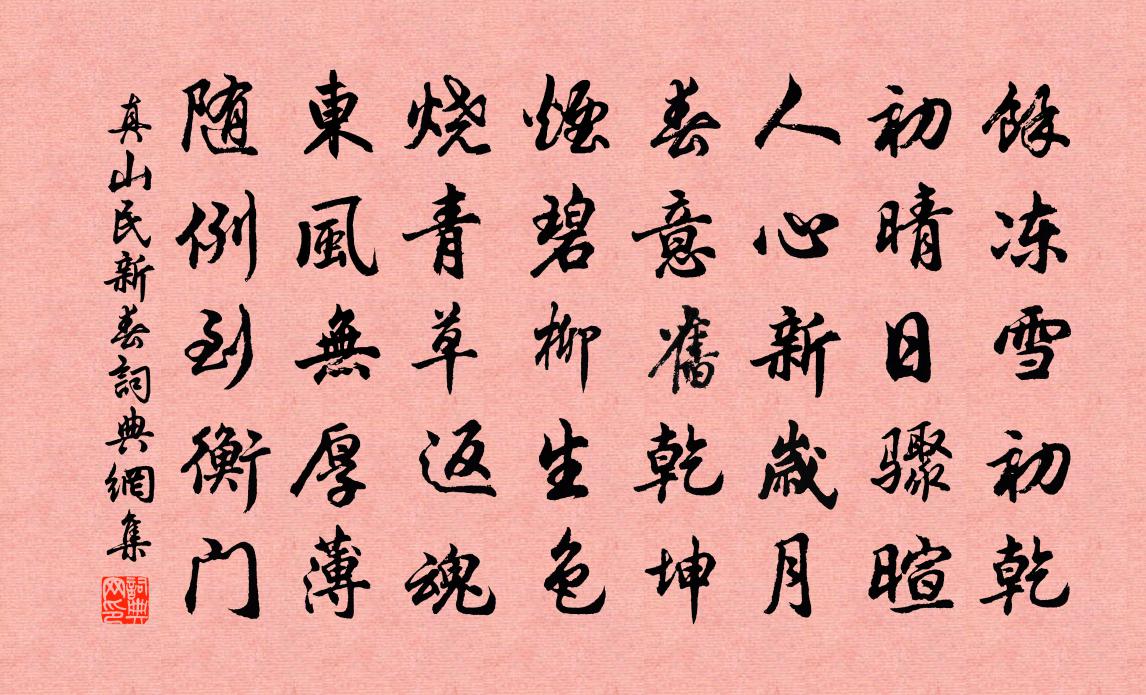 餘冻雪初乾
初晴日骤暄
人心新歲月
春意舊乾坤
煙碧柳生色
烧青草返魂
東風無厚薄
随例到衡门
真山民新春詞典網集
詞典网印